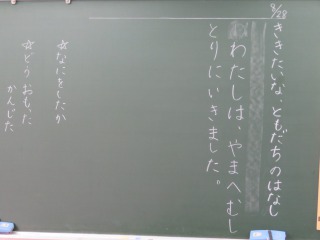 9/28
ききたいな、ともだちのはなし
わたしは、やまへむし
とりにいきました。
☆なにをしたか
☆どうおもった
かんじた